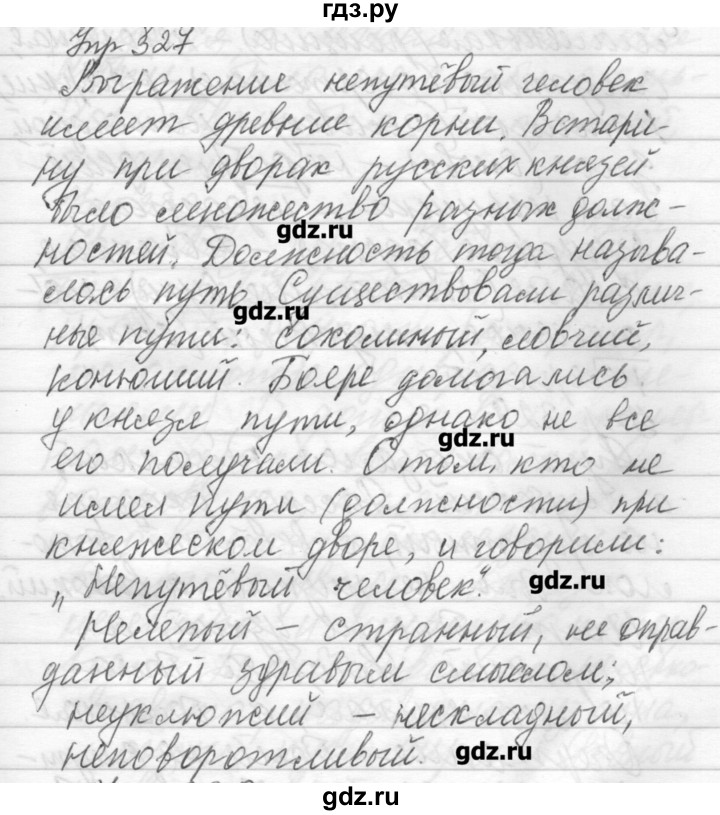 гдз.ру
Упр 327
Выражение непутёвый человек
имеет древние корни. Встари-
ну при дворах русских князей
было множество разных долж-
gdz.ru
ностей. Должность тогда называ-
лось путь. Существовали различ-
gdz.ru
ные пути: соколиный, ловчий,
конюший. Бояре домогались
у князя пути, однако не все
gdz.ru
его получали. О том, кто не
имел пути (должности) при
княжеском дворе, и говорили:
„Непутёвый человек“.
gdz.ru
Нелепый – странный, не оправ-
данный здравым смыслом;
неуклюжий – нескладный,
неповоротливый.
gdz.ru
gdz.ru